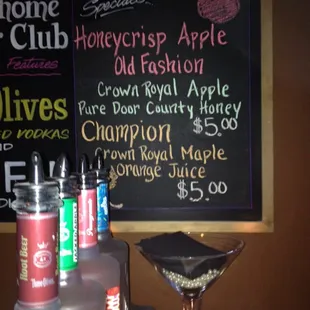 Specials
home
r Club
Features
Olives
ed VODKAS
ND
Honeycrisp Apple
Old Fashion
Crown Royal Apple
Pure Door County Honey
$5.00
Champion
Crown Royal Maple
Orange Juice
$5.00
Root Beer
Three Olives